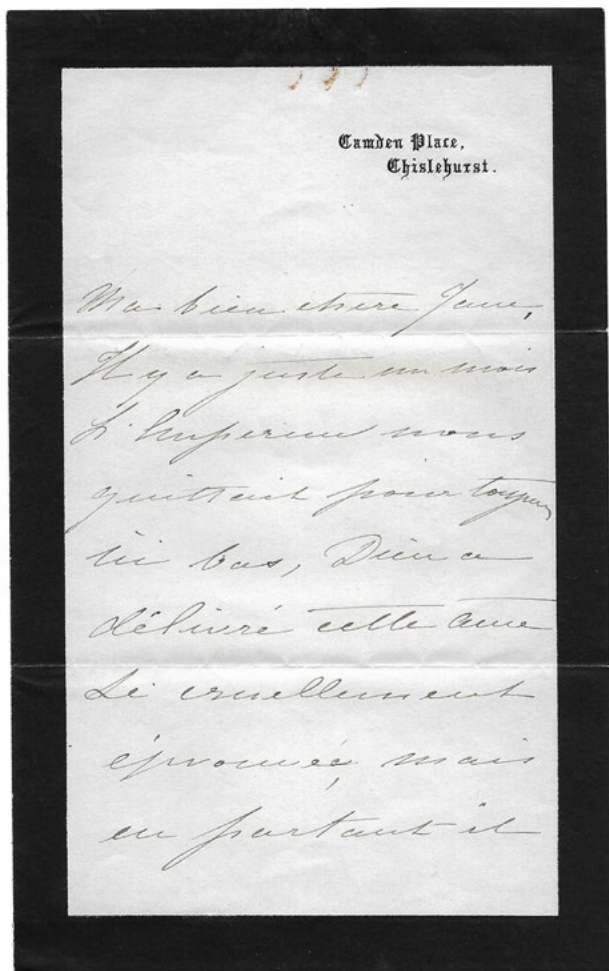 Camden Place,
Chislehurst.
Ma bien chere Jane,
Il y a juste un mois
L'Empereur nous
quittait pour toujours
ici bas, Dieu a
délivré cette ame
si cruellement
éprouvée, mais
en partant il